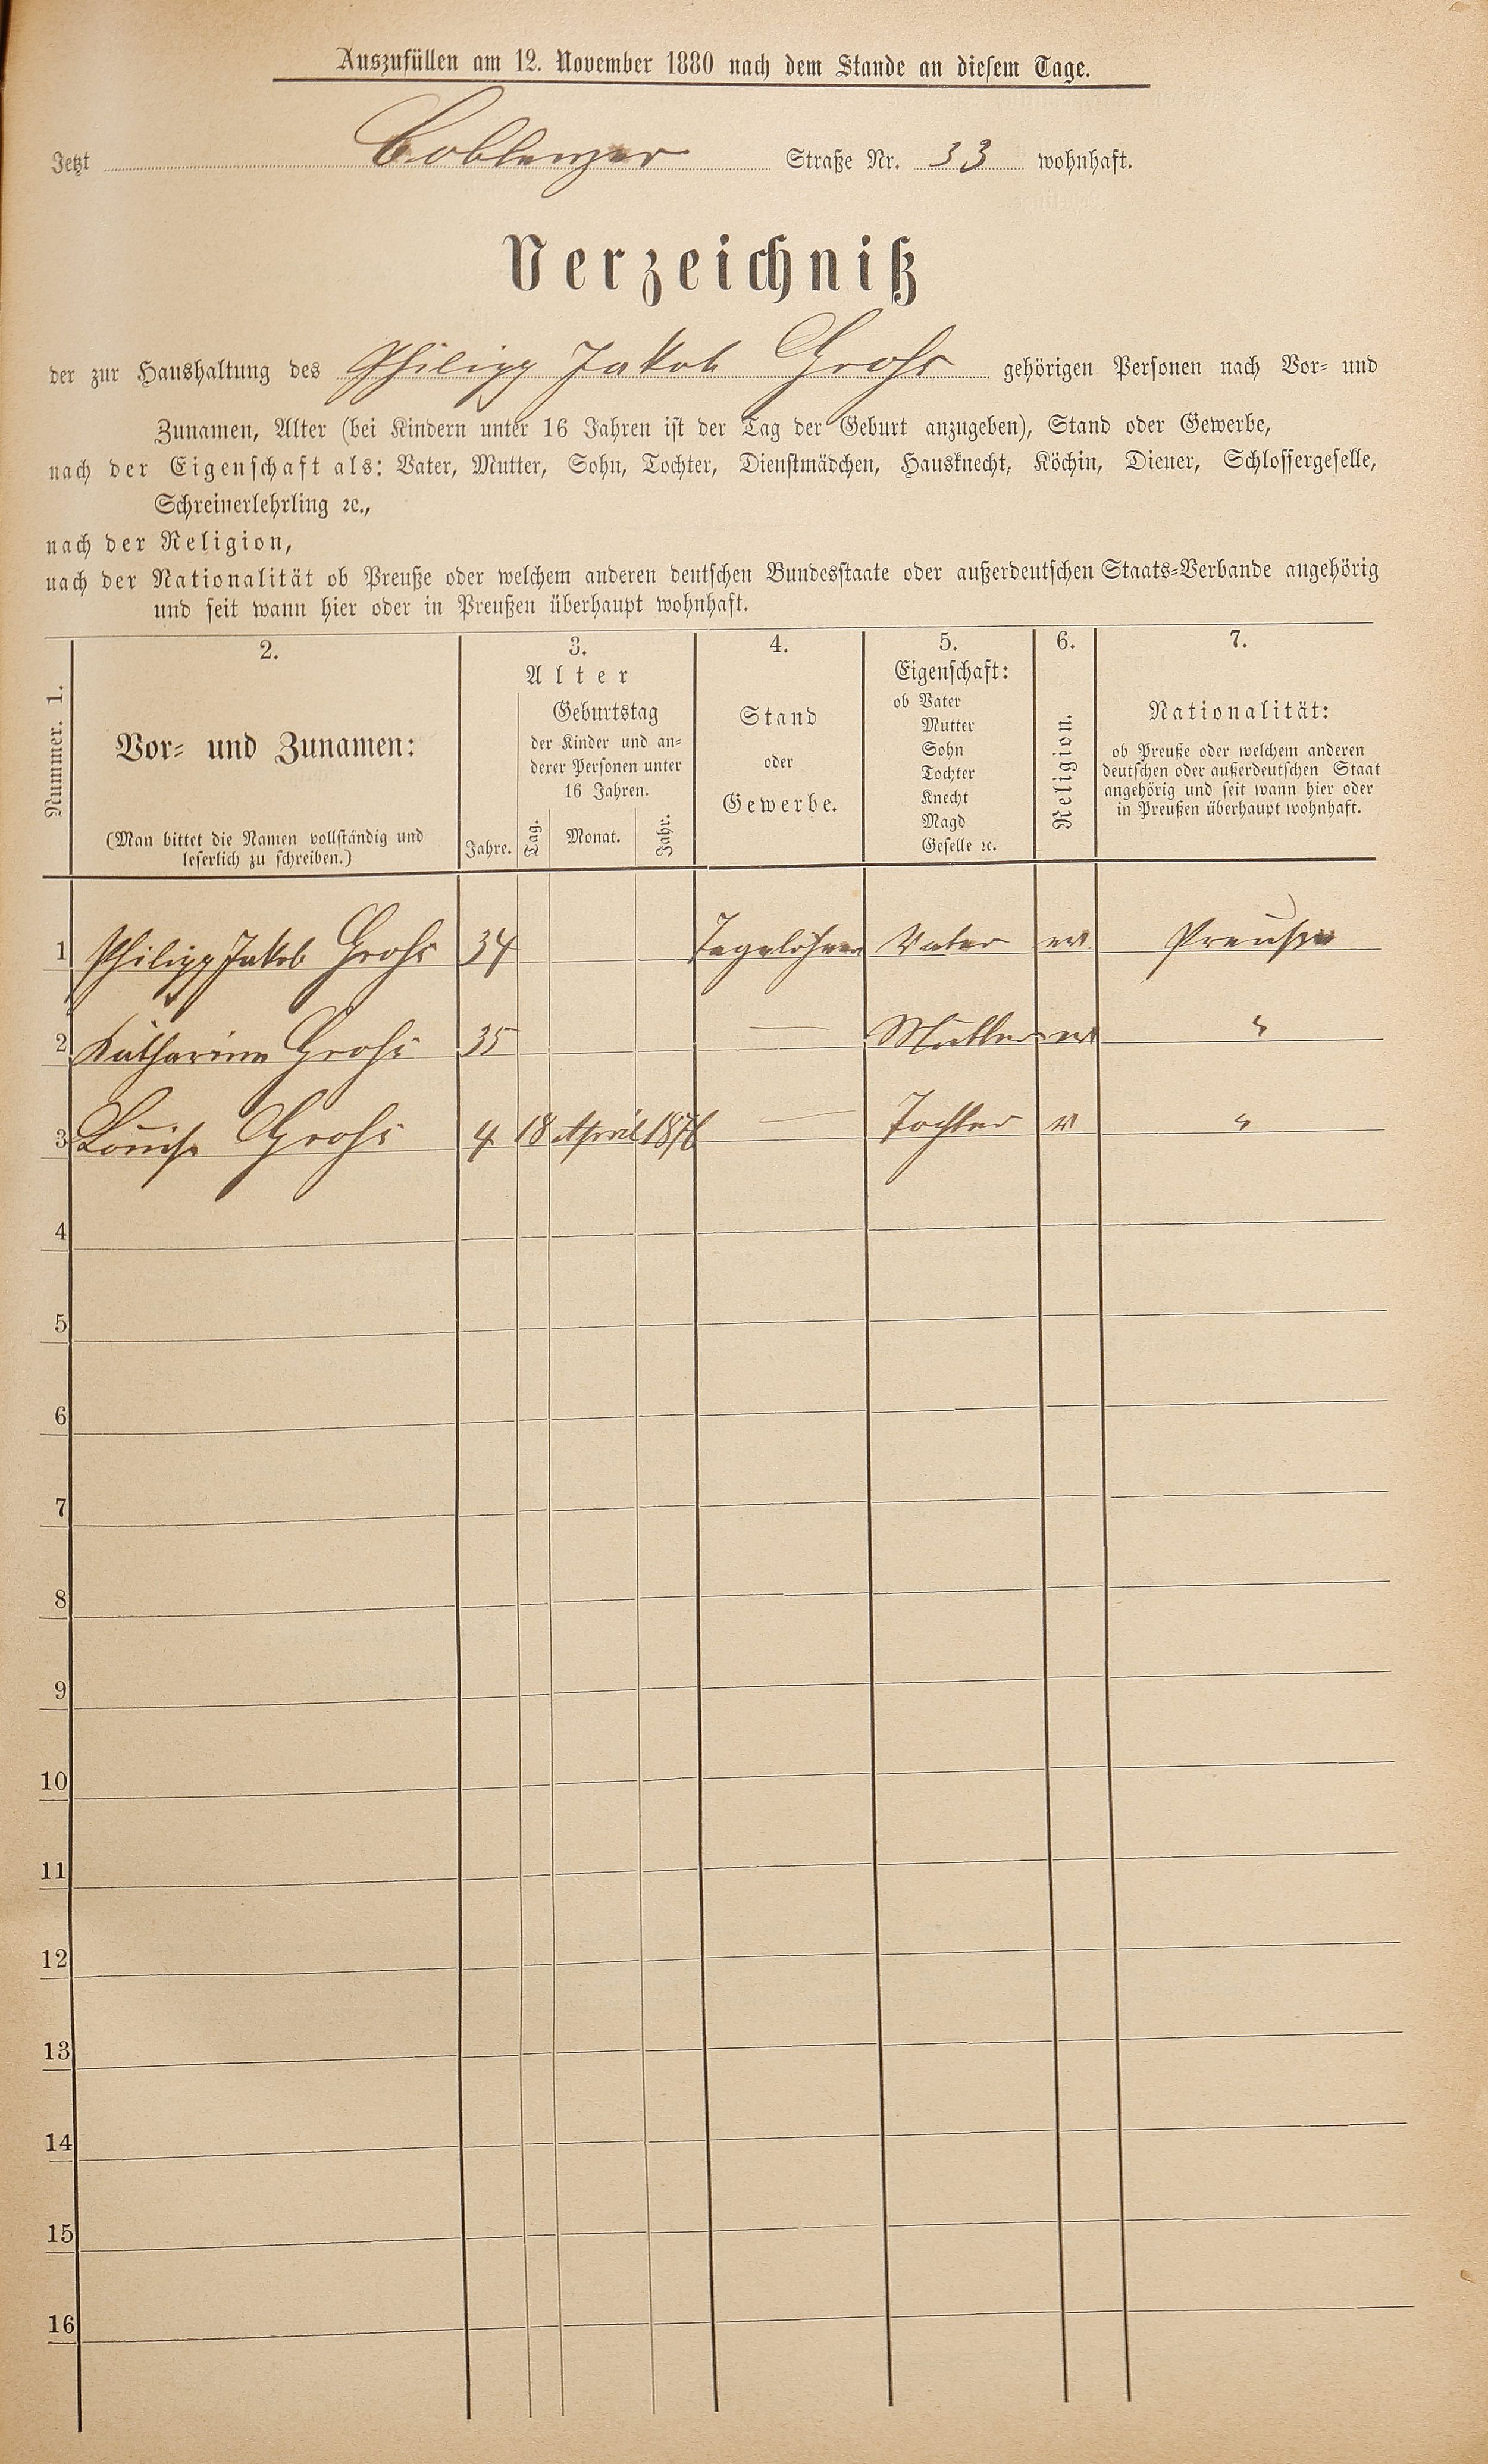 Auszufüllen am 12. November 1880 nach dem Stande an diesem Tage.
Jetzt Coblenzer Straße Nr. 33 wohnhaft.
Verzeichniß
der zur Haushaltung des Philipp Jakob Grohs gehörigen Personen nach Vor- und
Zunamen, Alter (bei Kindern unter 16 Jahren ist der Tag der Geburt anzugeben), Stand oder Gewerbe,
nach der Eigenschaft als: Vater, Mutter, Sohn, Tochter, Dienstmädchen, Hausknecht, Köchin, Diener, Schlossergeselle,
Schreinerlehrling ꝛc.,
nach der Religion,
nach der Nationalität ob Preuße oder welchem anderen deutschen Bundesstaate oder außerdeutschen Staats-Verbande angehörig
und seit wann hier oder in Preußen überhaupt wohnhaft.
Nummer. 1.
2.
Vor- und Zunamen:
(Man bittet die Namen vollständig und
leserlich zu schreiben.)
3.
Alter
Jahre.
Geburtstag
der Kinder und an-
derer Personen unter
16 Jahren.
Tag. Monat. Jahr.
4.
Stand
oder
Gewerbe.
5.
Eigenschaft:
ob Vater
Mutter
Sohn
Tochter
Knecht
Magd
Geselle ꝛc.
6.
Religion.
7.
Nationalität:
ob Preuße oder welchem anderen
deutschen oder außerdeutschen Staat
angehörig und seit wann hier oder
in Preußen überhaupt wohnhaft.
1 Philipp Jakob Grohs 34 Tagelöhner Vater ev. Preuße
2 Katharina Grohs 35 — Mutter ev "
3 Louise Grohs 4 18 April 1876 — Tochter "
4
5
6
7
8
9
10
11
12
13
14
15
16